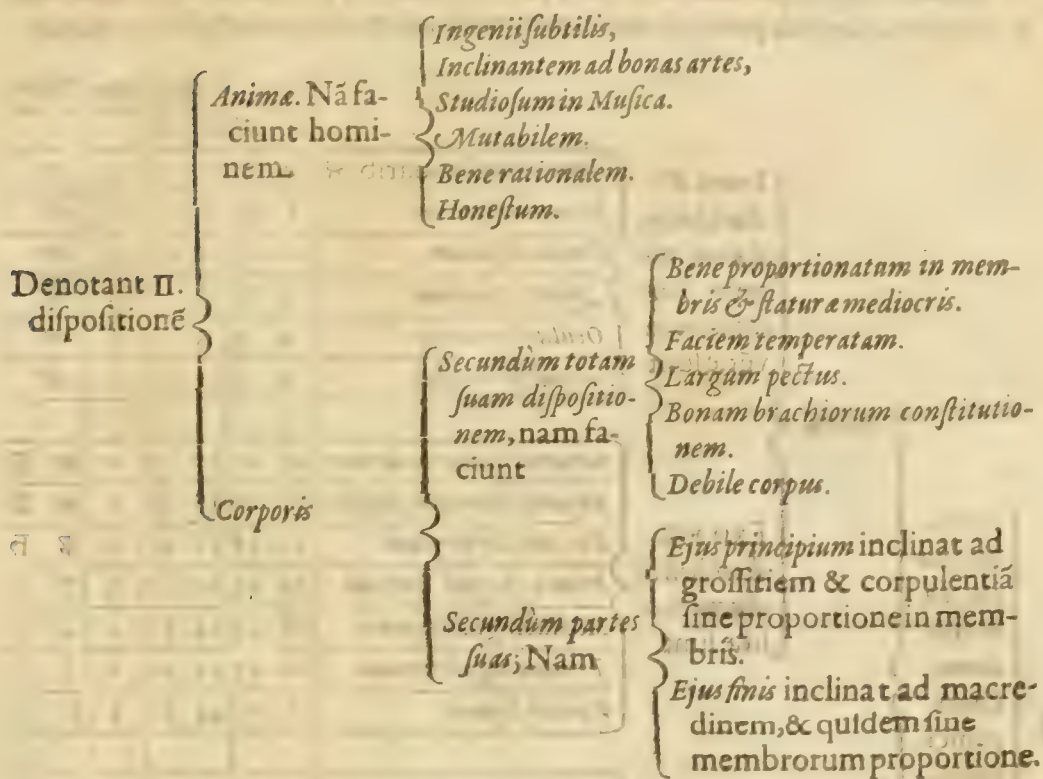 Denotant II.
diſpoſitionẽ
Animæ. Nã fa-
ciunt homi-
nem.
Ingenii ſubtilis,
Inclinantem ad bonas artes,
Studioſum in Muſica.
Mutabilem.
Bene rationalem.
Honeſtum.
Corporis
Secundùm totam
ſuam diſpoſitio-
nem, nam fa-
ciunt
Bene proportionatum in mem-
bris & ſtaturæ mediocris.
Faciem temperatam.
Largum pectus.
Bonam brachiorum conſtitutio-
nem.
Debile corpus.
Secundùm partes
ſuas; Nam
Ejus principium inclinat ad
groſſitiem & corpulentiã
ſine proportione in mem-
bris.
Ejus finis inclinat ad macre-
dinem, & quidem ſine
membrorum proportione.